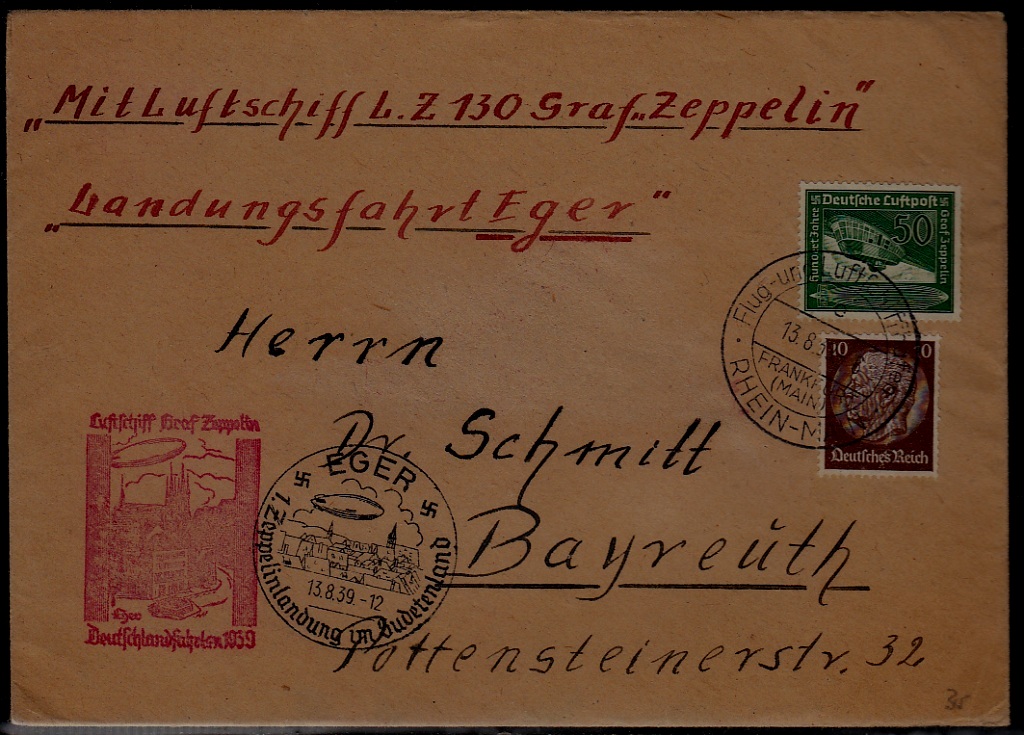 „Mit Luftschiff L.Z 130 Graf „Zeppelin"
„Landungsfahrt Eger"
Deutsche Luftpost
Hundert Jahre
50
Graf Zeppelin
Flug- und Luft
13.8.3
FRANKF
(MAIN)
RHEIN-M
Deutsches Reich
Herrn
Dr. Schmitt
Bayreuth
Pottensteinerstr. 32
Luftschiff Graf Zeppelin
Eger
Deutschlandfahrten 1939
EGER
1. Zeppelinlandung im Sudetenland
13.8.39.-12